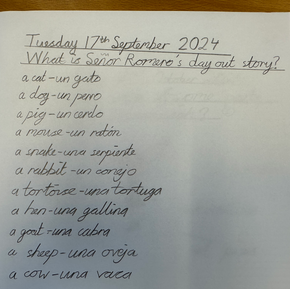 Tuesday 17th September 2024
What is Señor Romero's day out story?
a cat-un gato
a dog-un perro
a pig-un cerdo
a mouse-un ratón
a snake-una serpiente
a rabbit-un conejo
a tortoise-una tortuga
a hen-una gallina
a goat-una cabra
a sheep-una oveja
a cow-una vaca